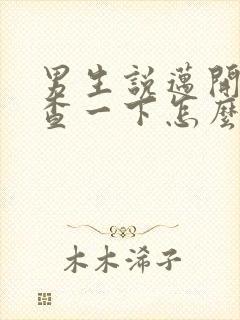 男生說邁開
查一下怎麼
木木浠子